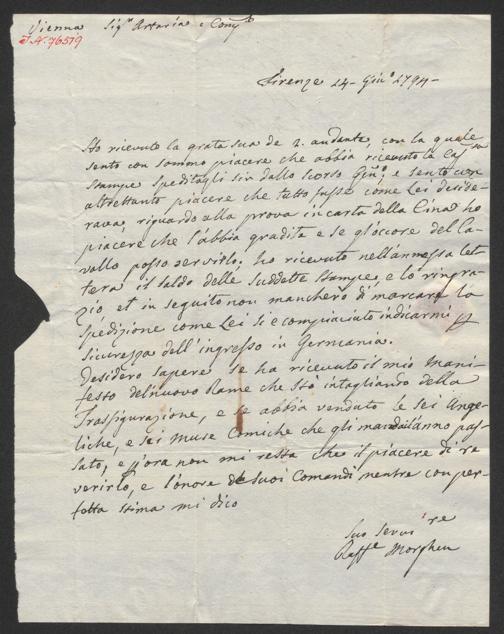 Vienna Sig.ri Artaria e Comp.
I.N. 76519
Firenze 14 Giu.o 1794
Ho ricevuto la grata sua de 2. andante, con la quale
sento con sommo piacere che abbia ricevuto la
Stampe speditagli sin dallo scorso e sento con
altrettanto piacere che tutto fusse come Lei deside-
rava, riguardo alla prova in carta della Cina ho
piacere che l'abbia gradita e se gl'occore del Ca-
vallo posso servirlo. ho ricevuto nell'annessa let-
tera il saldo delle suddette Stampe, e lo ringra-
zio et in seguito non mancherò di marcare la
spedizione come Lei si è compiaciuto indicarmi
sicurezza dell'ingresso in Germania.
Desidero sapere se ha ricevuto il mio Mani-
festo del nuovo Rame che stò intagliando della
Trasfigurazione, e se abbia venduto le sei Ange-
liche, e sei Muse Comiche che gli mandai l'anno pas-
sato, e p/ora non mi resta che il piacere di re-
verirlo, e l'onore de Suoi Comandi mentre con per-
fetta stima mi dico
Suo Serv.re
Raff.e Morghen